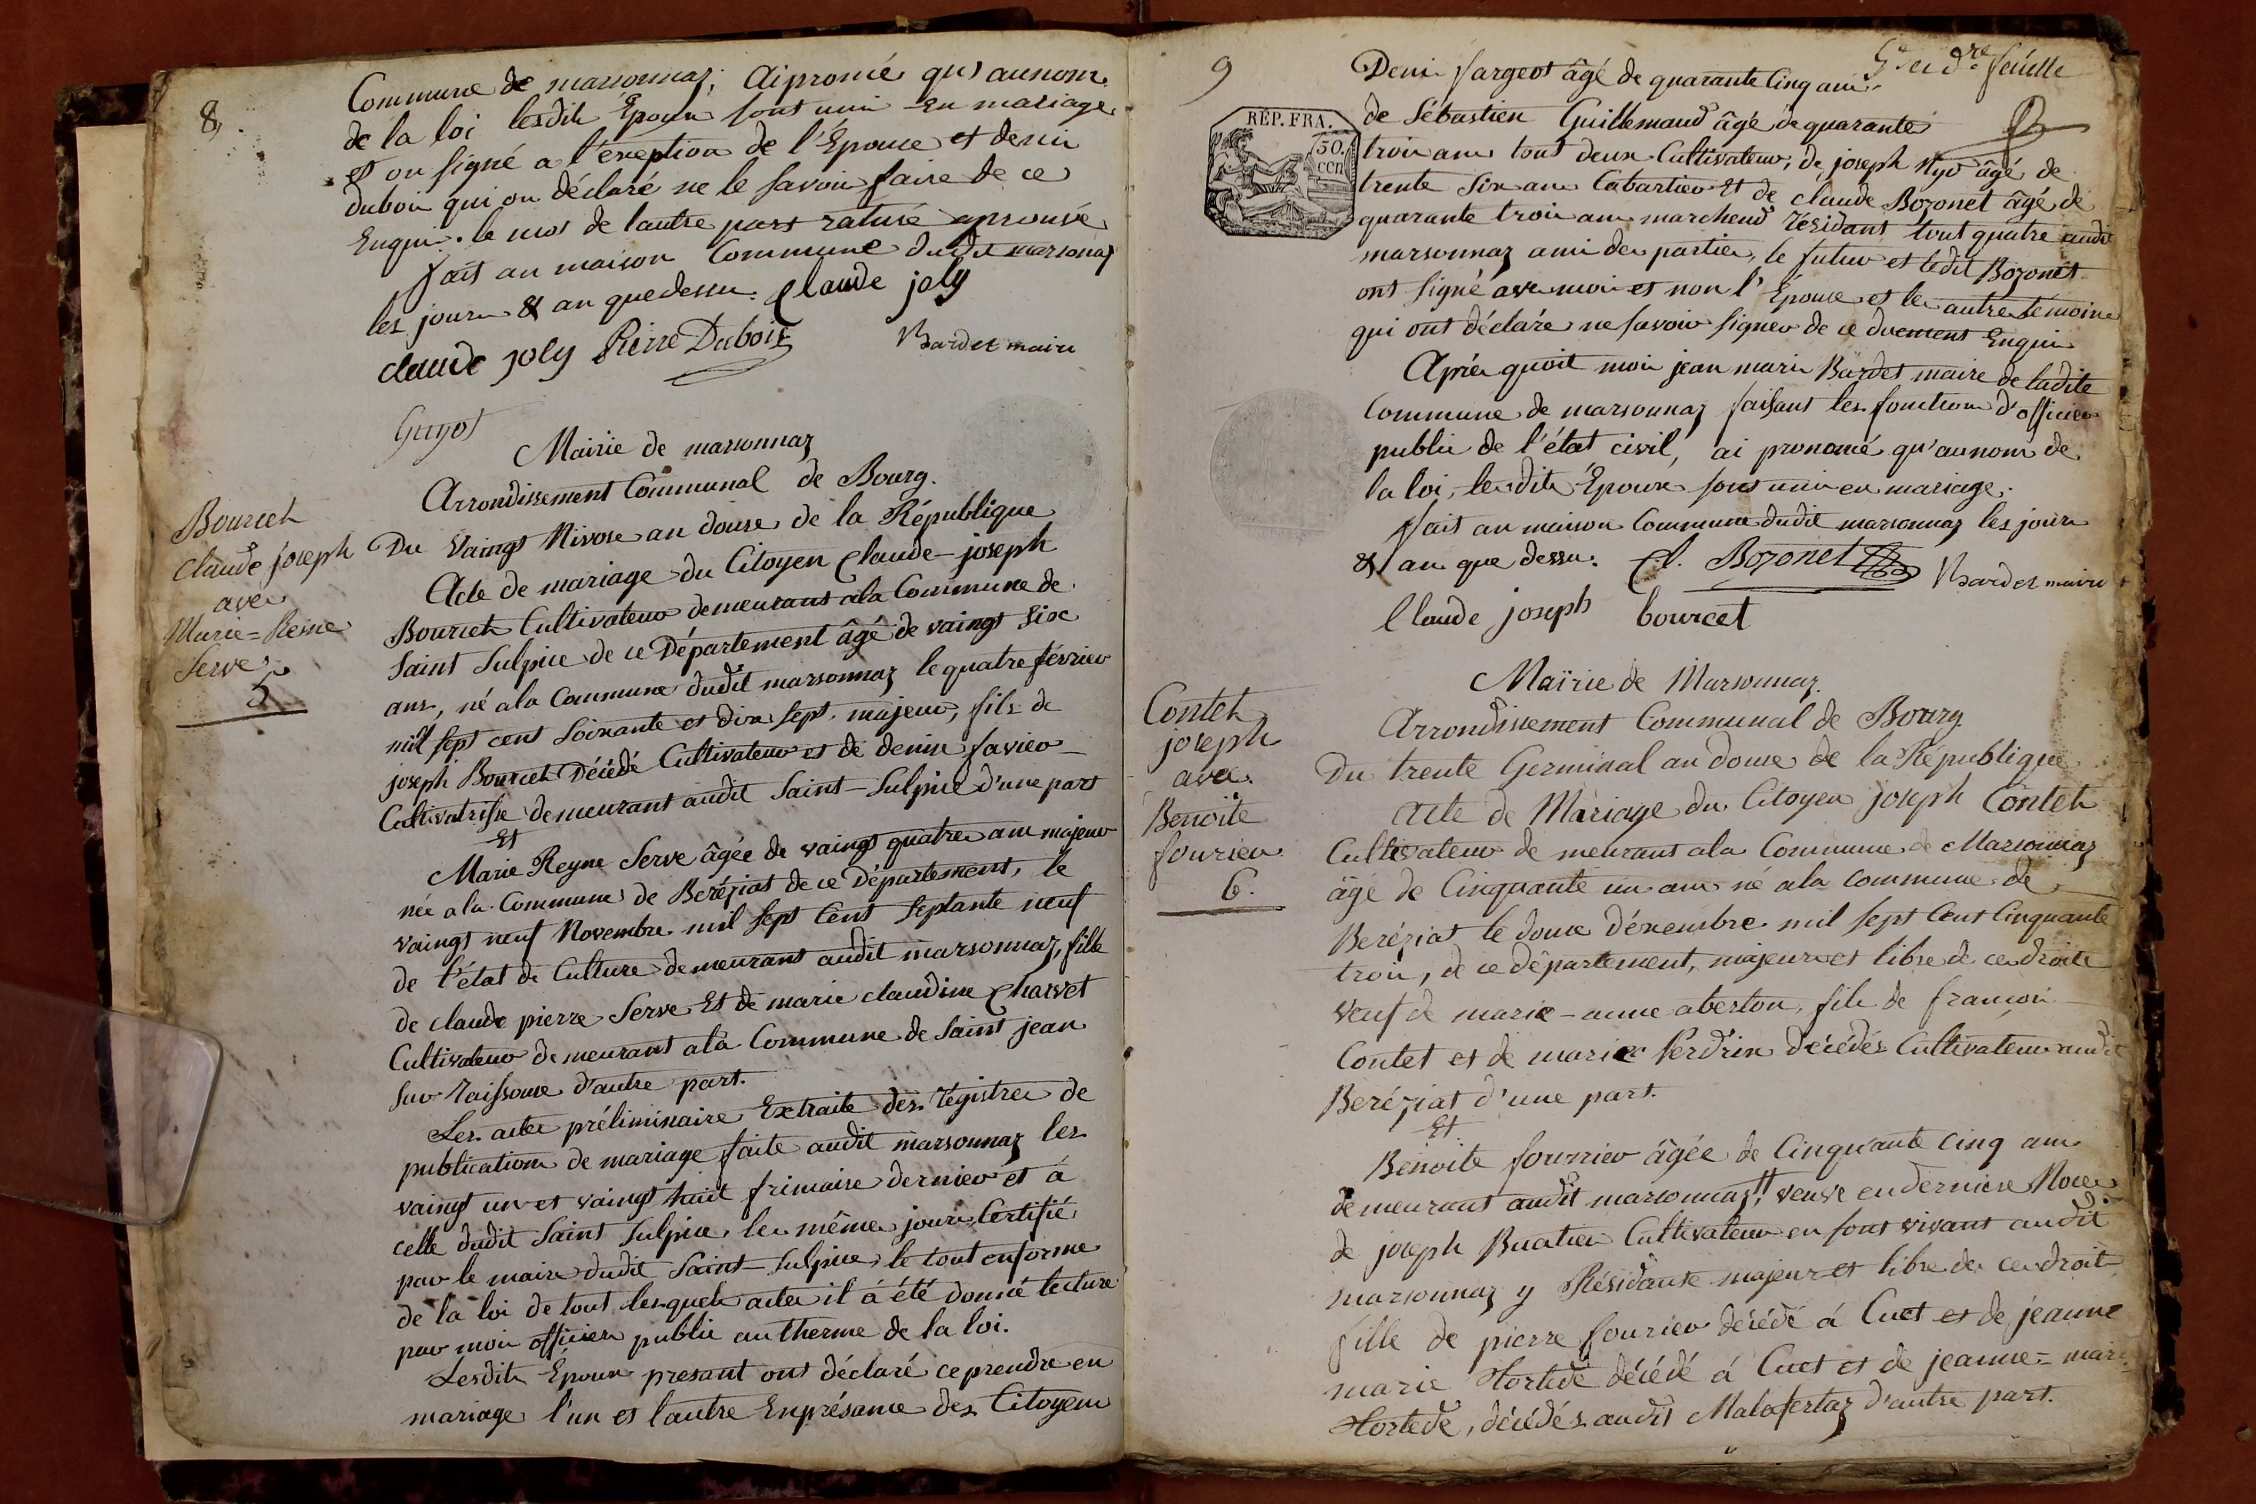 8,
Commune de marsonnaz; ai promié qu'aunom
de la loi lesdits Époux sont unis En mariage
et on signé a l'exeption de l'Épouse et denis
dubois qui on déclaré ne le savoir faire de ce
Enquis. le mos de lautre part raturé aprouvé
fait au maison Commune dudit marsonnaz
les jour & an que dessu. Claude joly
claude joly Pierre Dubois Bardet maire
Guyot
Mairie de marsonnaz
Arrondissement Communal de Bourg.
Bourcet
Claude joseph
avec
Marie=Reine
Serve
5
Du Vaingt Nivose an douze de la République
Acte de mariage du Citoyen Claude-joseph
Bourcet Cultivateur demeurant ala Commune de
Saint Sulpice de ce Département âgé de vaingt Six
ans, né ala Commune dudit marsonnaz le quatre février
mil sept cent soixante et dix sept, majeur, fils de
joseph Bourcet Décédé Cultivateur et de denise favier
Cultivatrisse demeurant audit Saint-Sulpice d'une part
Et
Marie Reyne Serve âgée de vaingt quatre ans majeur
née ala Commune de Beréziat de ce Département, le
vaingt neuf Novembre mil sept Cent Septante neuf
de l'état de Culture demeurant audit marsonnaz, fille
de claude pierre Serve Et de marie claudine Charvet
Cultivateur demeurant ala Commune de Saint jean
sur raissouse d'autre part.
Les actes préliminaire Extraits des registres de
publications de mariage faite audit marsonnaz les
vaingt un et vaingt huit frimaire dernier et á
celle dudit Saint Sulpice les même jours Certifié
par le maire dudit Saint-Sulpice, le tout enforme
de la loi de tout lesquels actes il á été donné lecture
par moi officier public au therme de la loi.
Lesdits Époux presant ont déclaré ce prendre en
mariage l'un et l'autre Enprésance des Citoyens
9
5e et dre feuille
RÉP. FRA.
50.
cen
Denis fargeot âgé de quarante Cinq ans.
de Sébastien Guillemaud âgé de quarante
trois ans tout deux Cultivateur, de joseph Nyd âgé de
trente Six ans Cabartier Et de claude Bozonet âgé de
quarante trois ans marchend résidant tout quatre audit
marsonnaz ami des parties, le futur et ledit Bozonet
ont signé avec moi et non l'Épouse et les autres témoins
qui ont déclaré ne savoir signer de ce duement Enquis
Après quoit moi jean marie Bardet maire de ladite
Commune de marsonnaz faisant les fonction d'officier
public de l'état civil, ai prononcé qu'au nom de
la loi, lesdits Époux sont unis en mariage.
fait au maison Commune dudit marsonnaz les jour
& an que dessu. Cl. Bozonet Bardet maire
Claude joseph bourcet
Maïrie de Marsonnaz.
Arrondissement Communal de Bourg
Contet
joseph
avec
Benoite
fourier
6.
Du trente Germinal an douze de la République
acte de Mariage du Citoyen joseph Contet
Cultivateur demeurant ala Commune de Marsonnaz
âgé de Cinquante un ans né ala commune de
Beréziat le douze décembre mil sept Cent Cinquante
trois, de ce département, majeur et libre de ce droits
veuf de marie-anne aberton, fils de francois
Contet et de marie Perdrix décédés Cultivateur audit
Beréziat d'une part.
Et
Benoite fourier âgée de Cinquante cinq ans
demeurant audit marsonnaz, veuve en derniere Noces
de joseph Buatier Cultivateur en sont vivant audit
marsonnaz y Résidante majeur et libre de ce droit
fille de pierre fourier décédé á Cuet et de jeanne
marie Hortede décédé á Cuet et de jeanne=marie
Hortede, décédés audit Malafertaz d'autre part.